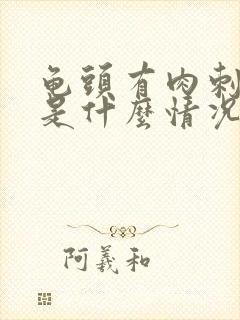 龟頭有肉刺
是什麼情况
阿義和